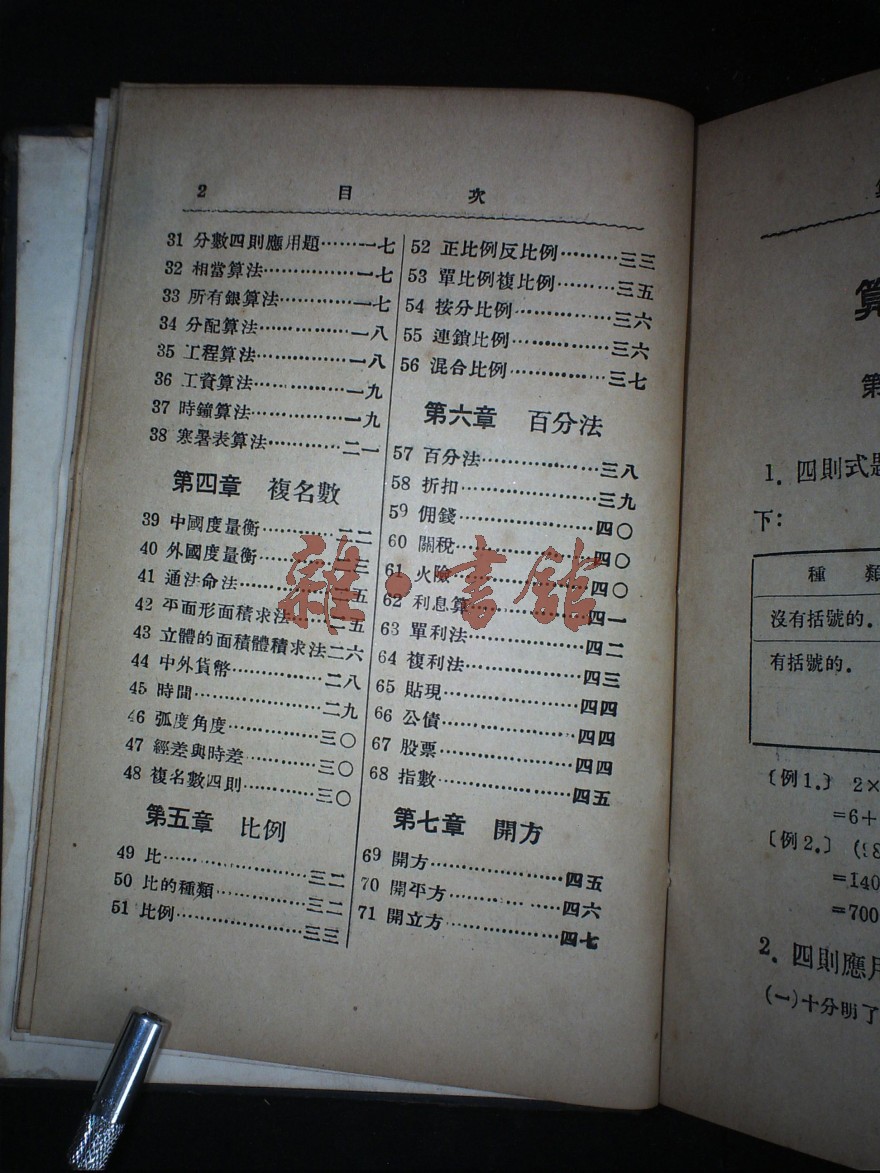 2 目 次
31 分數四則應用題……一七
32 相當算法……一七
33 所有銀算法……一七
34 分配算法……一八
35 工程算法……一八
36 工資算法……一九
37 時鐘算法……一九
38 寒暑表算法……二一
第四章 複名數
39 中國度量衡……二二
40 外國度量衡……二三
41 通法命法……二五
42 平面形面積求法……二五
43 立體的面積體積求法二六
44 中外貨幣……二八
45 時間……二九
46 弧度角度……三〇
47 經差與時差……三〇
48 複名數四則……三〇
第五章 比例
49 比……三二
50 比的種類……三二
51 比例……三三
52 正比例反比例……三三
53 單比例複比例……三五
54 按分比例……三六
55 連鎖比例……三六
56 混合比例……三七
第六章 百分法
57 百分法……三八
58 折扣……三九
59 佣錢……四〇
60 關稅……四〇
61 火險……四〇
62 利息算……四一
63 單利法……四二
64 複利法……四三
65 貼現……四四
66 公債……四四
67 股票……四四
68 指數……四五
第七章 開方
69 開方……四五
70 開平方……四六
71 開立方……四七
雜·書館
算
第
1. 四則式題
下：
種 類
沒有括號的．
有括號的．
〔例1.〕 2×
=6+
〔例2.〕 (98
=140
=700
2. 四則應用
(一)十分明了